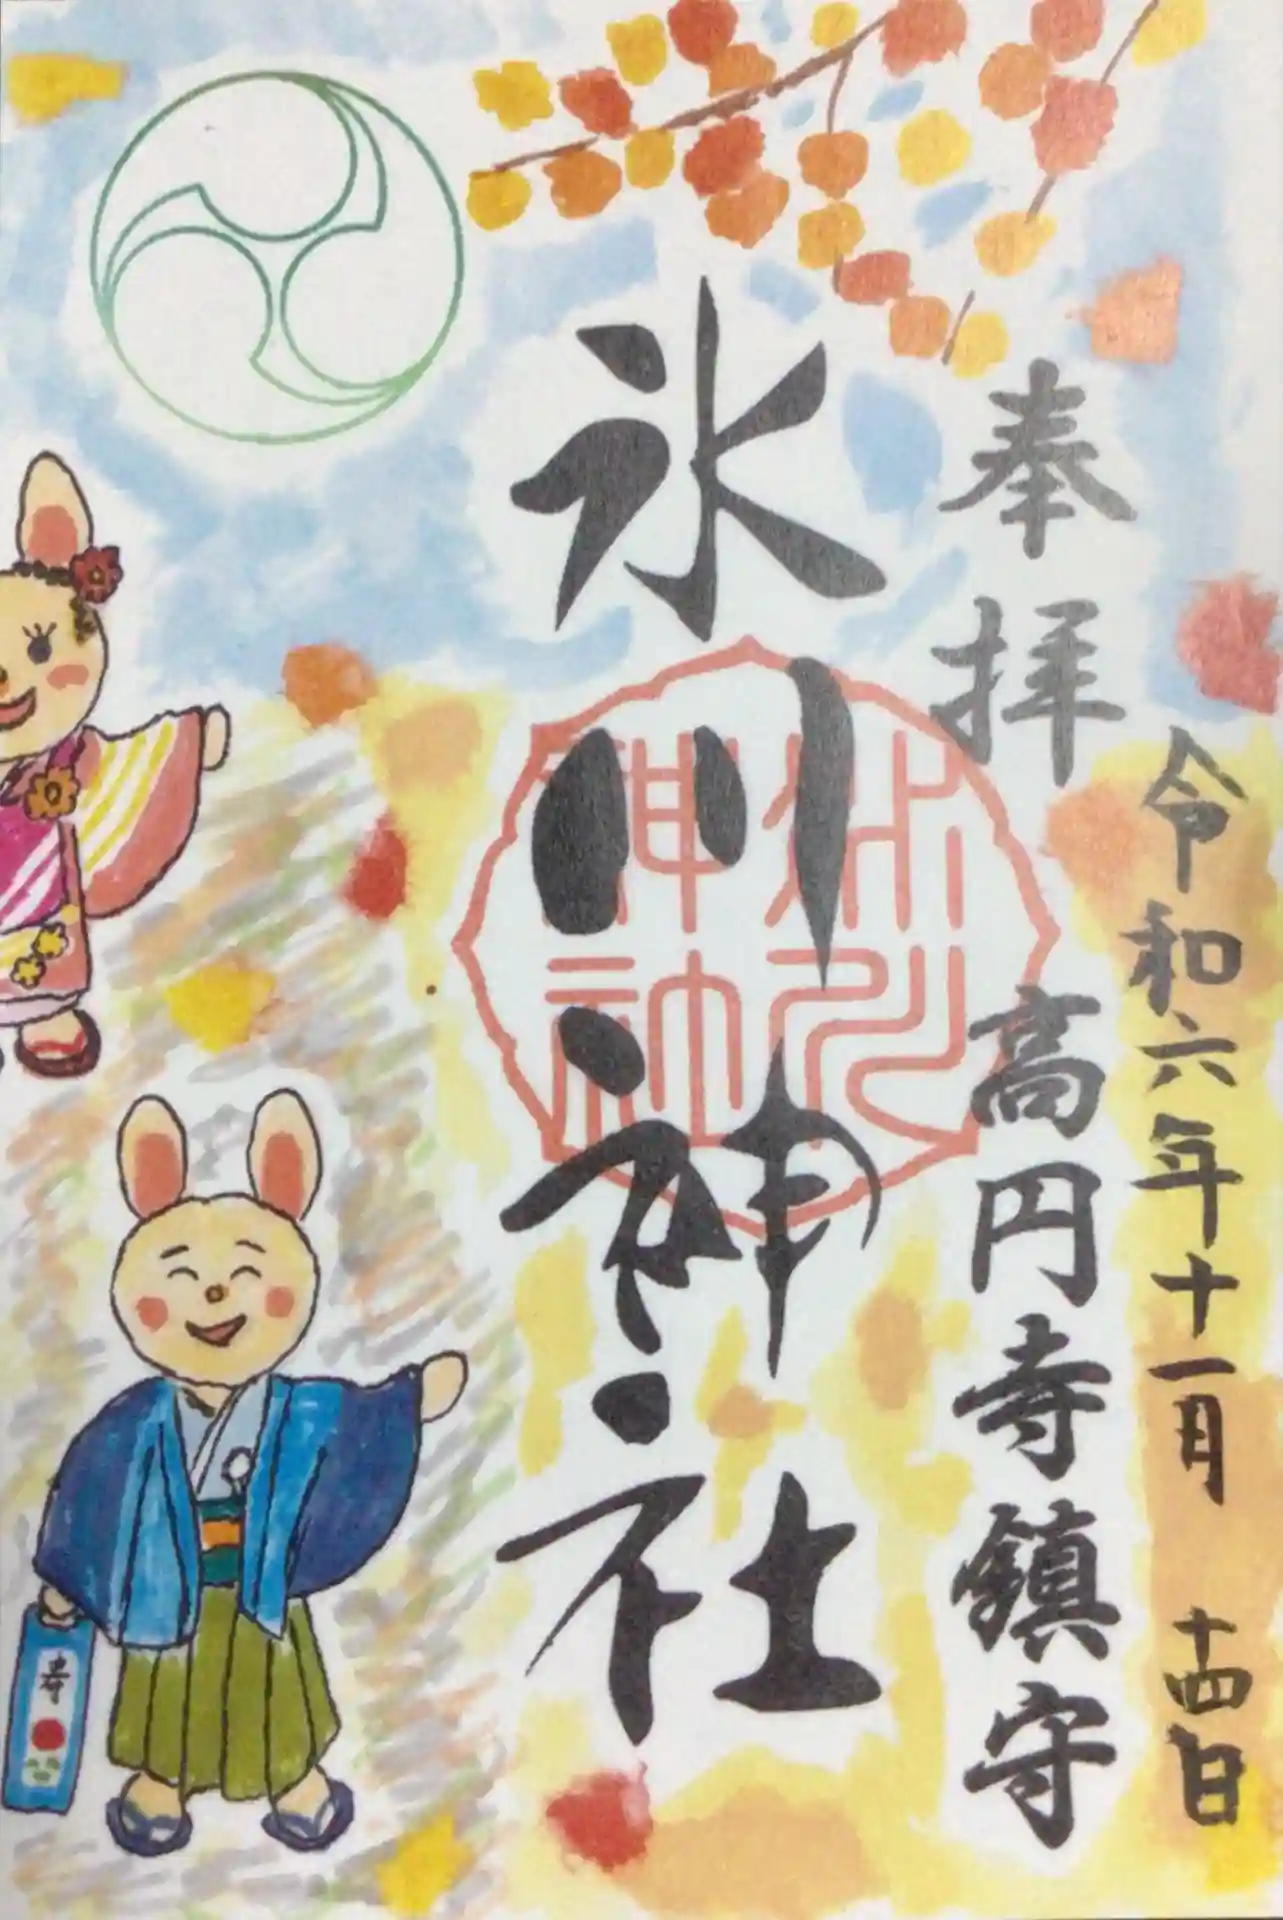 令和六年十一月 十四日
奉拝 高円寺鎮守
氷川神社
氷川
神社
寿